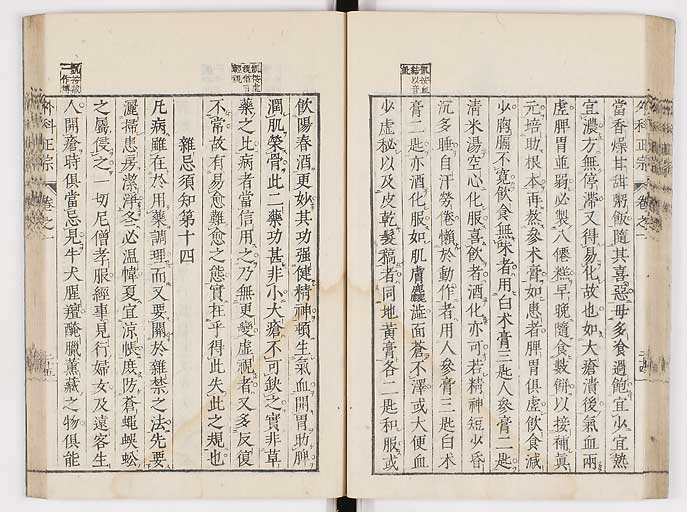 外科正宗 卷之一
當香燥甘甜粥飯隨其喜惡毋多食過飽宜少宜熱
宜濃方無停滯又得易化故也如大瘡潰後氣血兩
虛脾胃並弱必製八僊糕早晚隨食數餅以接補眞
元培助根本再熬參术膏如患者脾胃俱虛飲食減
少胸膈不寬飲食無味者用白术膏三匙人參膏二匙
清米湯空心化服喜飲者酒化亦可若精神短少昏
沉多睡自汗勞倦懶於動作者用人參膏三匙白术
膏二匙亦酒化服如肌膚麤澁面蒼不澤或大便血
少虛秘以及皮乾髮槁者同地黃膏各二匙和服或
飲陽春酒更妙其功强健精神頓生氣血開胃助脾
潤肌榮骨此二藥功甚非小大瘡不可缺之實非草
藥之比病者當信用之乃無更變虛視者又多反復
不常故有易愈難愈之態實在乎得此失此之規也
雜忌須知第十四
凡病雖在於用藥調理而又要關於雜禁之法先要
灑掃患房潔淨冬必溫幃夏宜涼帳庶防蒼蠅蜈蚣
之屬侵之一切尼僧孝服經事見行婦女及遠客生
人開瘡時俱當忌見牛犬腥羶醃臘薰藏之物俱能
外科正宗 卷之一